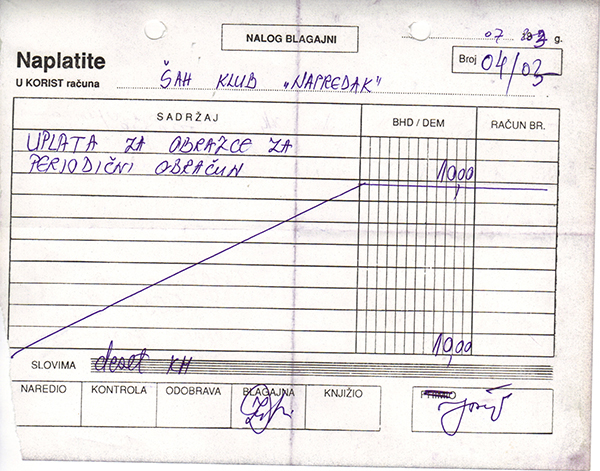 NALOG BLAGAJNI
07 g.
Naplatite
Broj 04/03
U KORIST računa ŠAH KLUB "NAPREDAK"
SADRŽAJ BHD / DEM RAČUN BR.
UPLATA ZA OBRAZCE ZA
PERIODIČNI OBRAČUN 10,00
10,00
SLOVIMA deset KM
NAREDIO KONTROLA ODOBRAVA BLAGAJNA KNJIŽIO PRIMIO